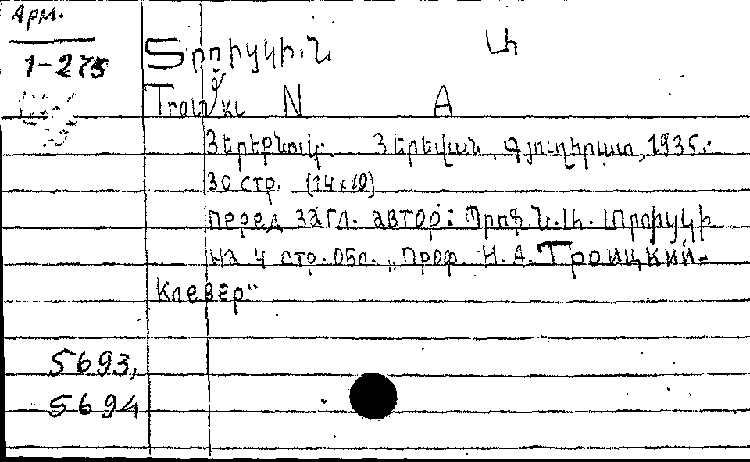 Арм.
1-275
Տրոիցկի. Ն Ա
Troicki N A
Յերեքնուկ. Յերեվան, Գյուղհրատ, 1935.
30 стр. (14x10)
перед загл. автор: Պրոֆ Ն. Ա. Տրոիցկի
на 4 стр. обл. „проф. Н. А. Троицкий-
Клевер"
5693,
5694